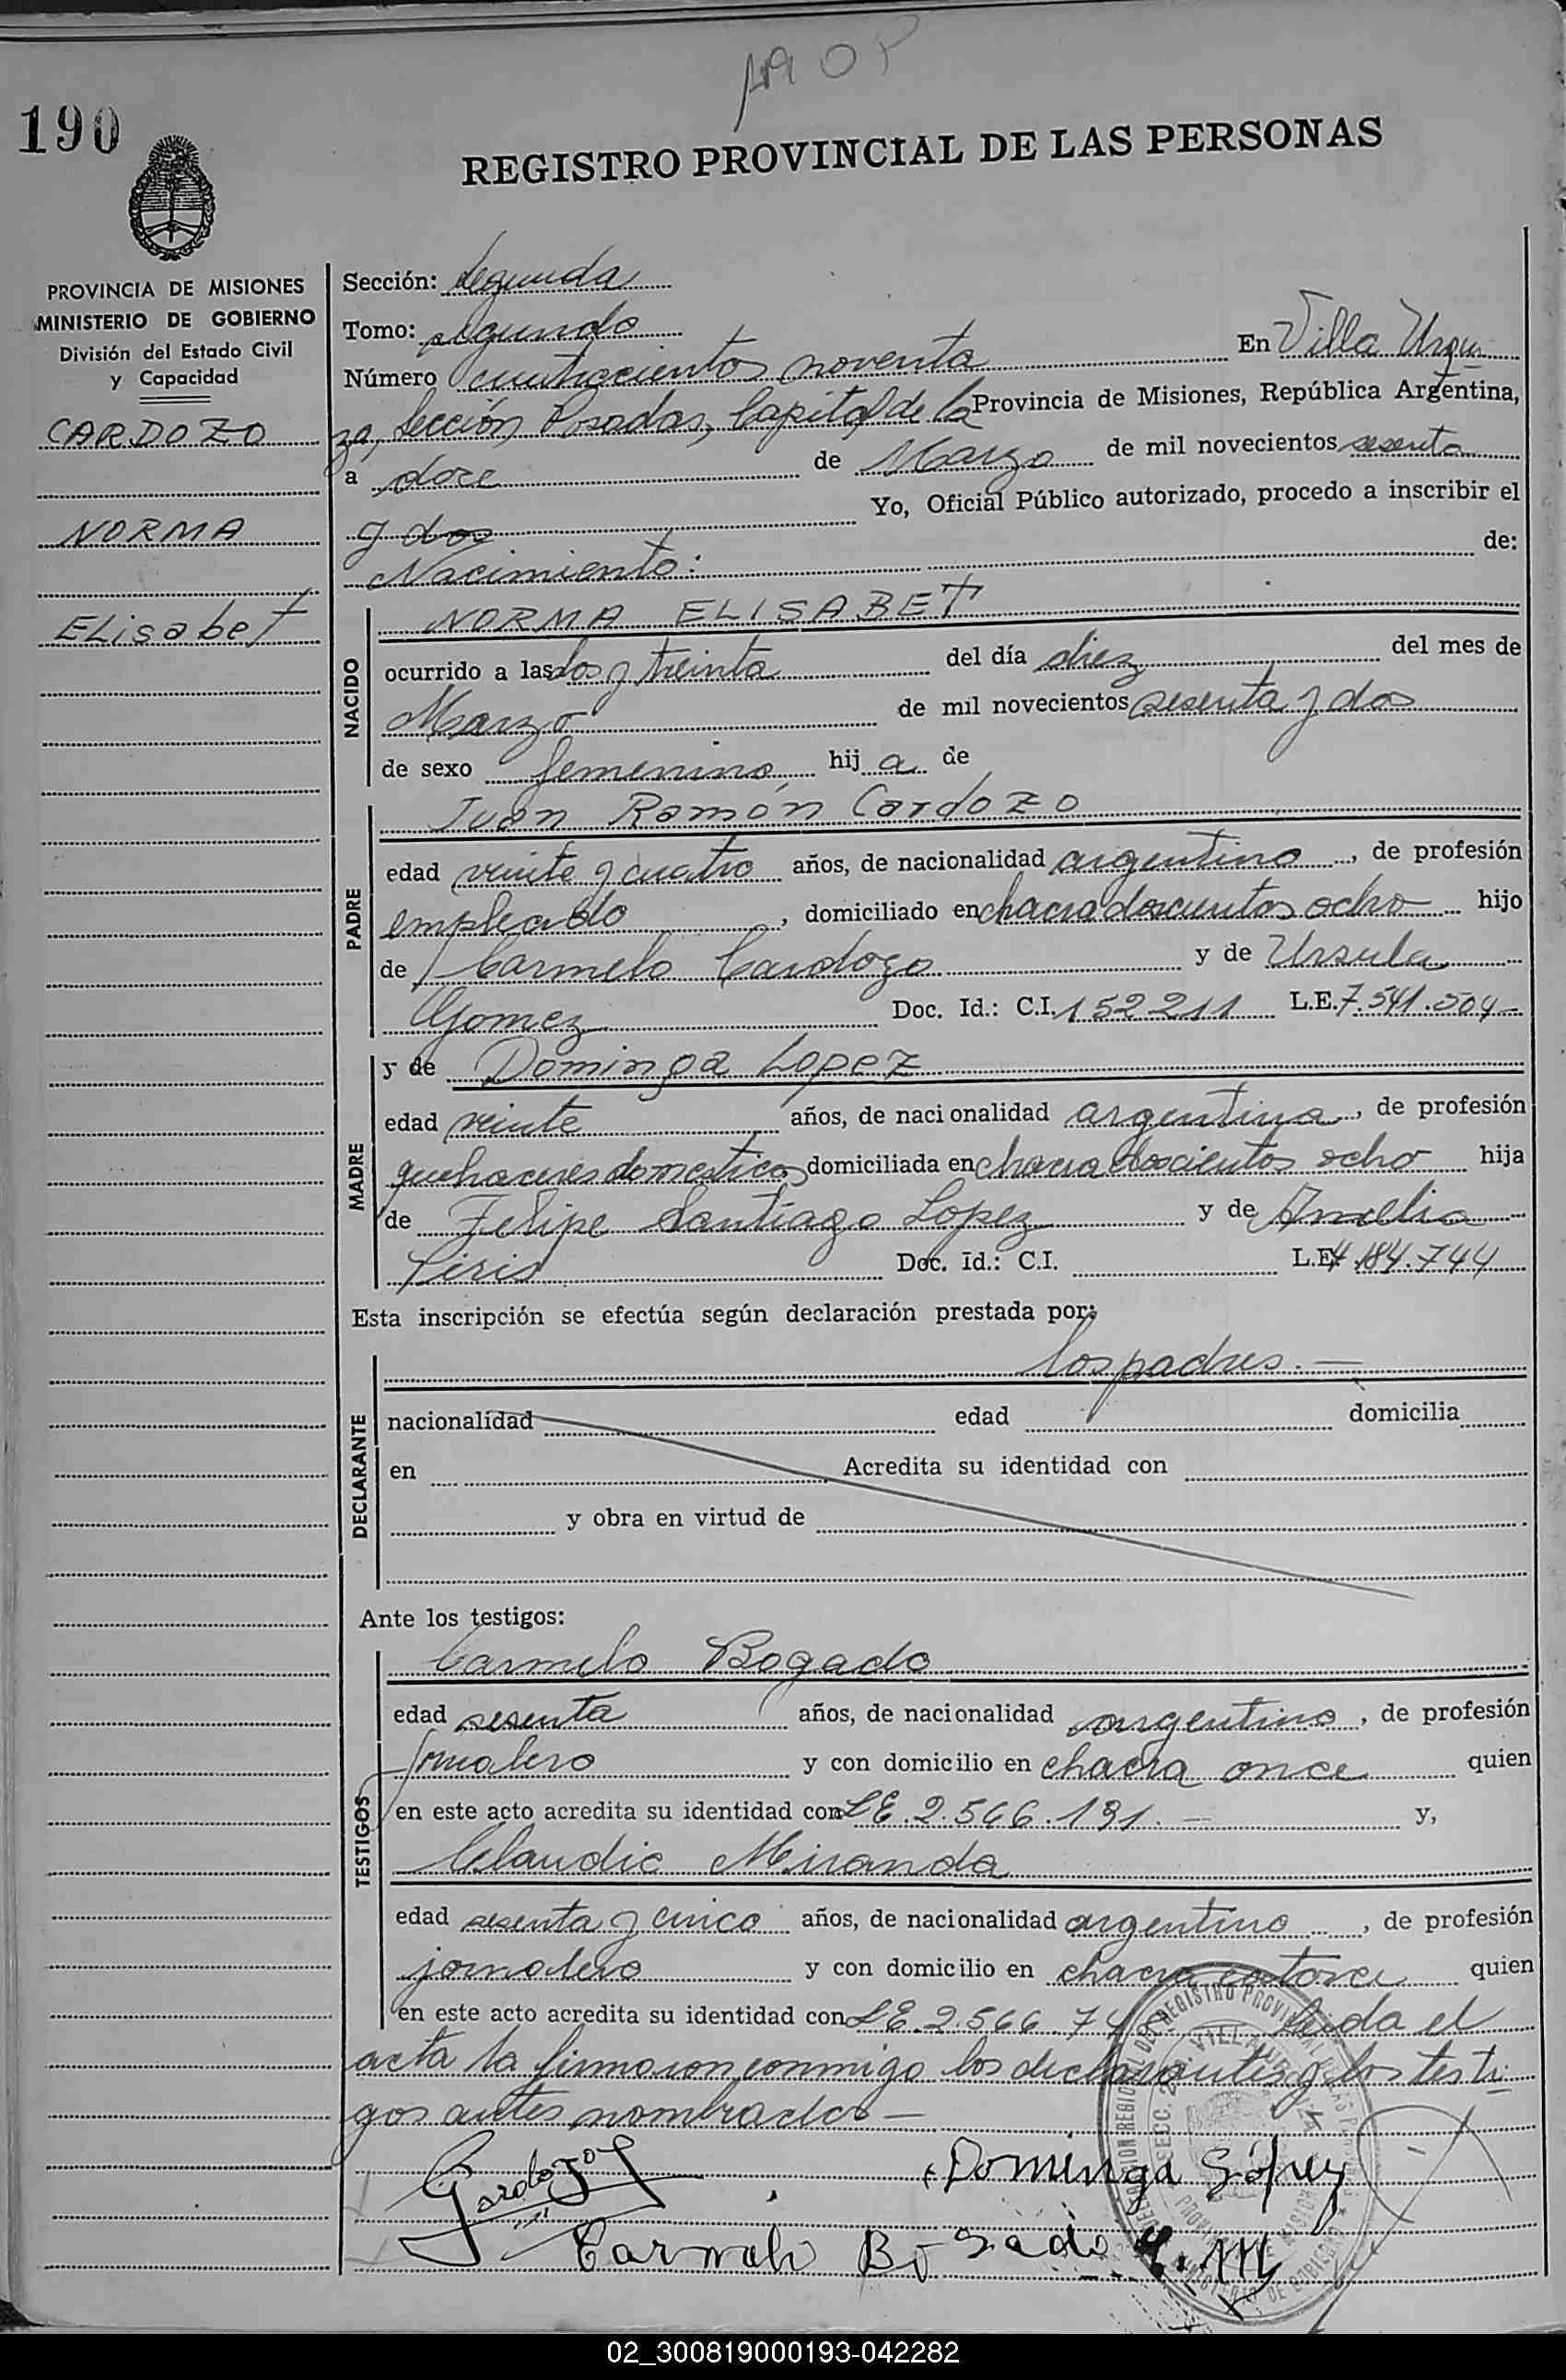 190
REGISTRO PROVINCIAL DE LAS PERSONAS
PROVINCIA DE MISIONES
MINISTERIO DE GOBIERNO
División del Estado Civil
y Capacidad
CARDOZO
NORMA
ELisabeT
Sección: segunda
Tomo: segundo
Número cuatrocientos noventa En Villa Urqui
za, Sección Posadas, Capital de la Provincia de Misiones, República Argentina,
a doce de Marzo de mil novecientos sesenta
y dos Yo, Oficial Público autorizado, procedo a inscribir el
Nacimiento: de:
NACIDO
NORMA ELISABET
ocurrido a las dos y treinta del día diez del mes de
Marzo de mil novecientos sesenta y dos
de sexo femenino hij a de
PADRE
Juan Ramón Cardozo
edad veinte y cuatro años, de nacionalidad argentino, de profesión
empleado, domiciliado en chacra doscientos ocho hijo
de Carmelo Cardozo y de Ursula
Gomez Doc. Id.: C.I. 152211 L.E. 7.541.504-
MADRE
y de Dominga Lopez
edad veinte años, de nacionalidad argentina, de profesión
quehaceres domesticos domiciliada en chacra doscientos ocho hija
de Felipe Santiago Lopez y de Amelia
Piris Doc. Id.: C.I. L.E. 4.184.744
Esta inscripción se efectúa según declaración prestada por:
los padres.-
DECLARANTE
nacionalidad edad domicilia
en Acredita su identidad con
y obra en virtud de
Ante los testigos:
TESTIGOS
Carmelo Bogado
edad sesenta años, de nacionalidad argentino, de profesión
Jornalero y con domicilio en chacra once quien
en este acto acredita su identidad con LE. 2.566.191.- y,
Claudio Miranda
edad sesenta y cinco años, de nacionalidad argentino, de profesión
jornalero y con domicilio en chacra catorce quien
en este acto acredita su identidad con LE. 2.566. Leida el
acta la firmaron conmigo los declarantes y los testi
gos antes nombrados-
Cardozo J Dominga López
Carmelo Bogado C. M
02_300819000193-042282